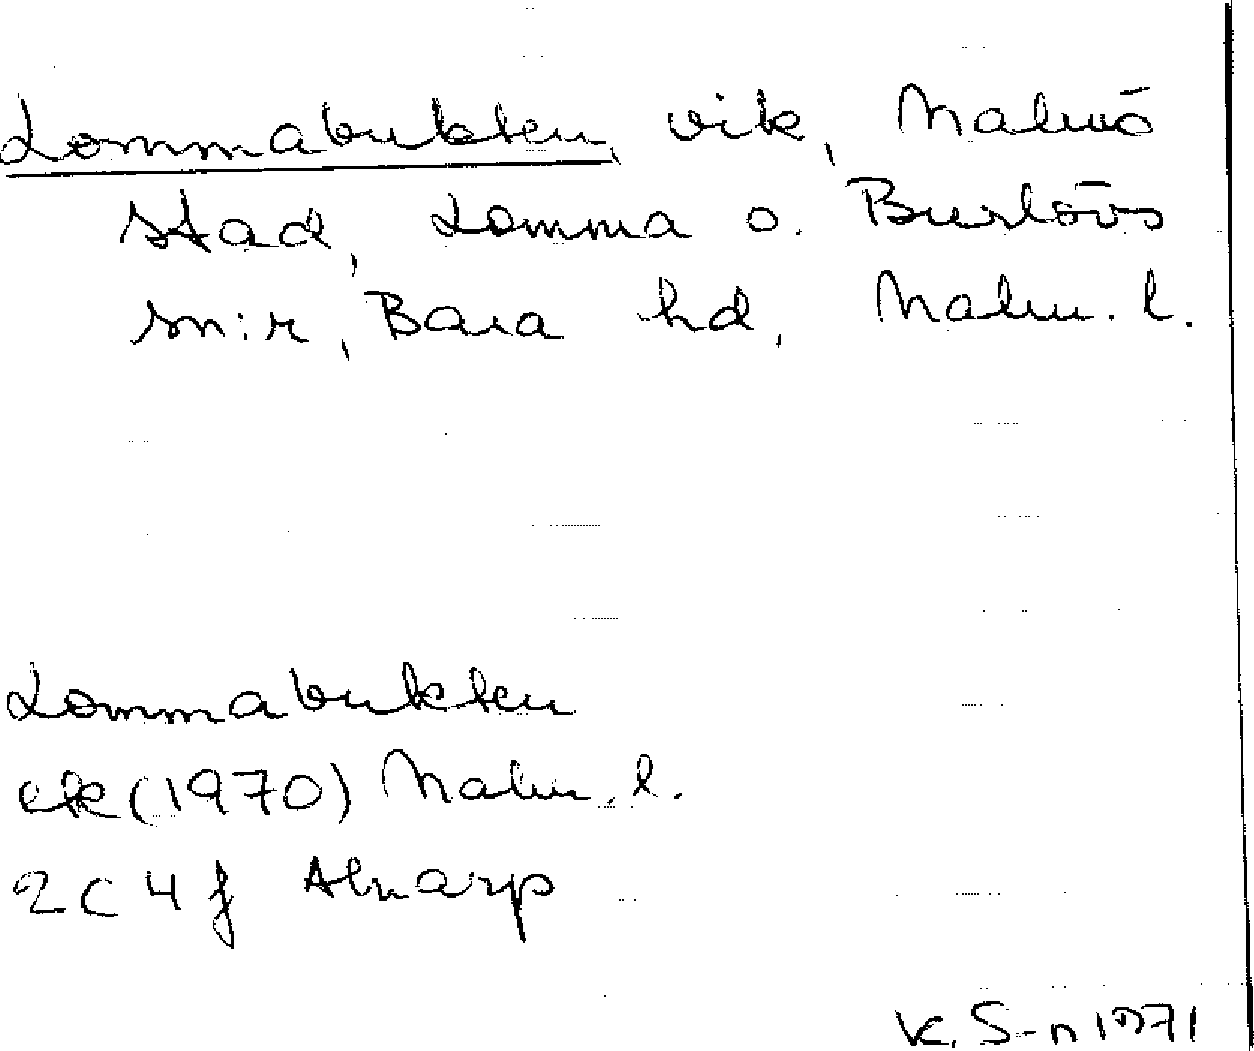 Lommabukten, vik, Malmö
stad, Lomma o. Burlövs
sn:r, Bara hd, Malm. l.
Lommabukten
ek (1970) Malm. l.
2C 4f Alnarp
K. S-n 1971